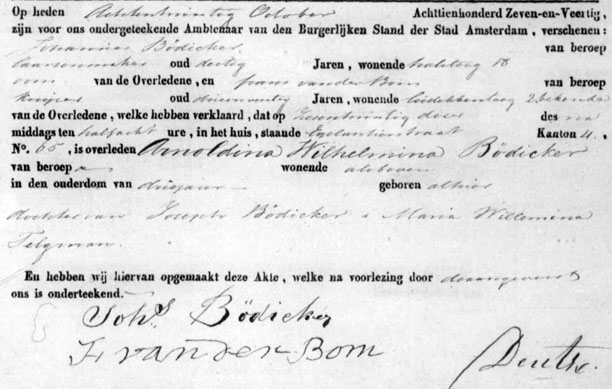 Op heden Achtentwintig October Achttienhonderd Zeven-en-Veertig,
zijn voor ons ondergeteekende Ambtenaar van den Burgerlijken Stand der Stad Amsterdam, verschenen:
Johannes Bödicker van beroep
laarzenmaker oud dertig Jaren, wonende 18
oom van de Overledene, en frans van der Bom van beroep
kuiper oud Jaren, wonende 2 bekende
van de Overledene, welke hebben verklaard, dat op Zesentwintig dezer des na
middags ten half acht ure, in het huis, staande Egelantierstraat Kanton 4.
No. 65, is overleden Arnoldina Wilhelmina Bödicker
van beroep wonende alsboven
in den ouderdom van drie jaar geboren alhier
dochter van Joseph Bödicker & Maria Willemina
Telgman.
En hebben wij hiervan opgemaakt deze Akte, welke na voorlezing door de aangevers &
ons is onderteekend.
Johs Bödicker
F van der Bom